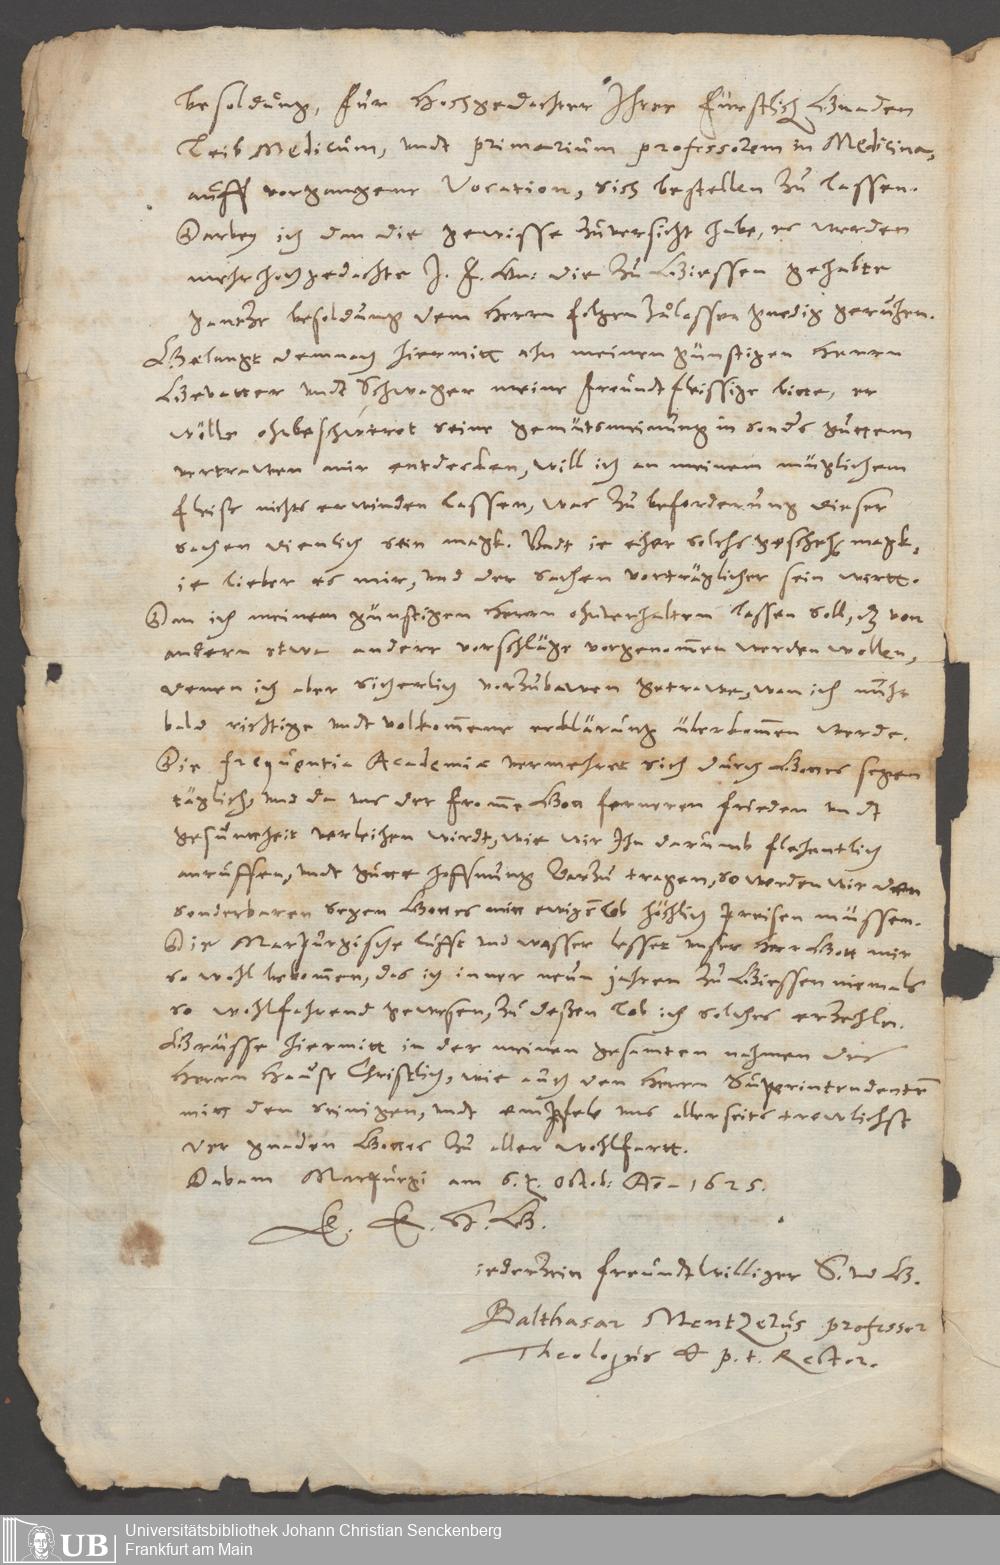 besoldung, für Hochgedachter Ihrer Fürstlich Gnaden
Leib Medicum, undt primarium professorem in Medicina,
auff vorgangene Vocation, sich bestellen zu lassen.
Darbey ich dan die gewisse zuversicht habe, es werden
mehrhochgedachte J. F. Gn: die zu Giessen gehabte
gantze besoldung dem Herrn folgen zulassen gnedig geruhen.
Gelangt demnach hiermitt ahn meinen günstigen Herrn
Gevatter undt Schwager meine freundtfleissige bitte, er
wölle ohnbeschwert seine gemütsmeinung in sonders guttem
vertrawen mir entdecken, will ich an meinem müglichem
fleiss nichts erwinden lassen, was zu beforderung dieser
sachen dienlich sein magk. Undt ie eher solchs geschehen magk,
ie lieber es mir, und der sachen vorträglicher sein wirtt.
Dan ich meinem günstigen Herrn ohnverhalten lassen soll, dz von
andern etwa andere vorschläge vorgenommen werden wollen,
denen ich aber sicherlich vorzubawen getrawe, wan ich nuhr
bald richtige undt volkommene erklärung überkommen werde.
Die frequentia Academiae vermehret sich durch Gottes segen
täglich, und da uns der fromme Gott ferneren frieden undt
gesuntheit verleihen wirdt, wie wir Ihn darumb flehentlich
anruffen, undt gutte hoffnung darzu tragen, so werden wir den
sonderbaren segen Gottes mitt ewigem lob höchlich preisen müssen.
Die Marpurgische lufft und wasser lesset unser Herr Gott mir
so wohl bekommen, das ich inner neun jahren zu Giessen niemals
so wohlfahrend gewesen, zu dessen lob ich solches erzehle.
Grüsse hiermitt in der meinen gesamten nahmen des
Herrn Hauss Christlich, wie auch den Herrn Superintendenten
mitt den seinigen, undt empfele uns allerseits trewlichst
der gnaden Gottes zu aller wohlfartt.
Dabam Marpurgi am 6. t. Octob: Ao 1625.
E. E. H. G.
iederzeit freundtwilliger S. und G.
Balthasar Mentzerus professor
Theologus & p. t. Rector.
UB
Universitätsbibliothek Johann Christian Senckenberg
Frankfurt am Main